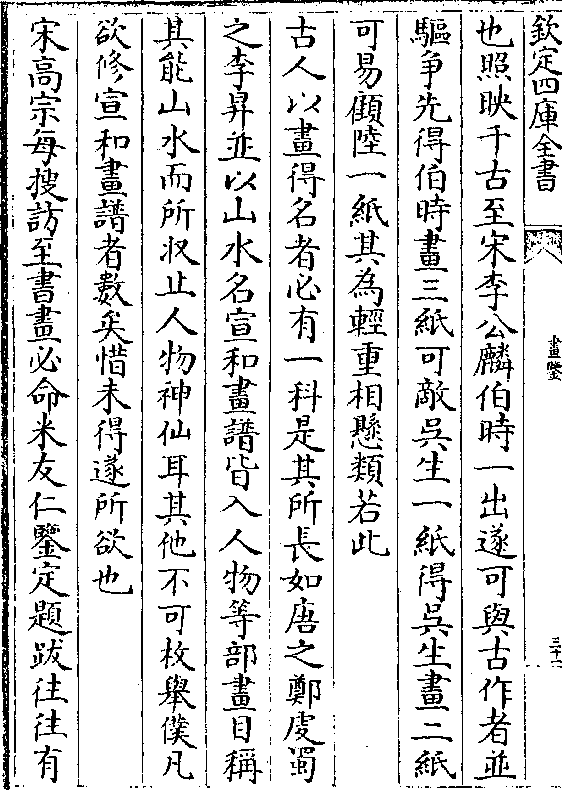 欽定四庫全書
畫鑒
三十一
也照映千古至宋李公麟伯時一出遂可與古作者並
驅争先得伯時畫三紙可敵吳生一紙得吳生畫二紙
可易顧陸一紙其為輕重相懸類若此
古人以畫得名者必有一科是其所長如唐之鄭虔蜀
之李昇並以山水名宣和畫譜皆入人物等部畫目稱
其能山水而所収止人物神仙耳其他不可枚舉僕凡
欲修宣和畫譜者數矣惜未得遂所欲也
宋高宗每搜訪至書畫必命米友仁鑒定題跋往往有